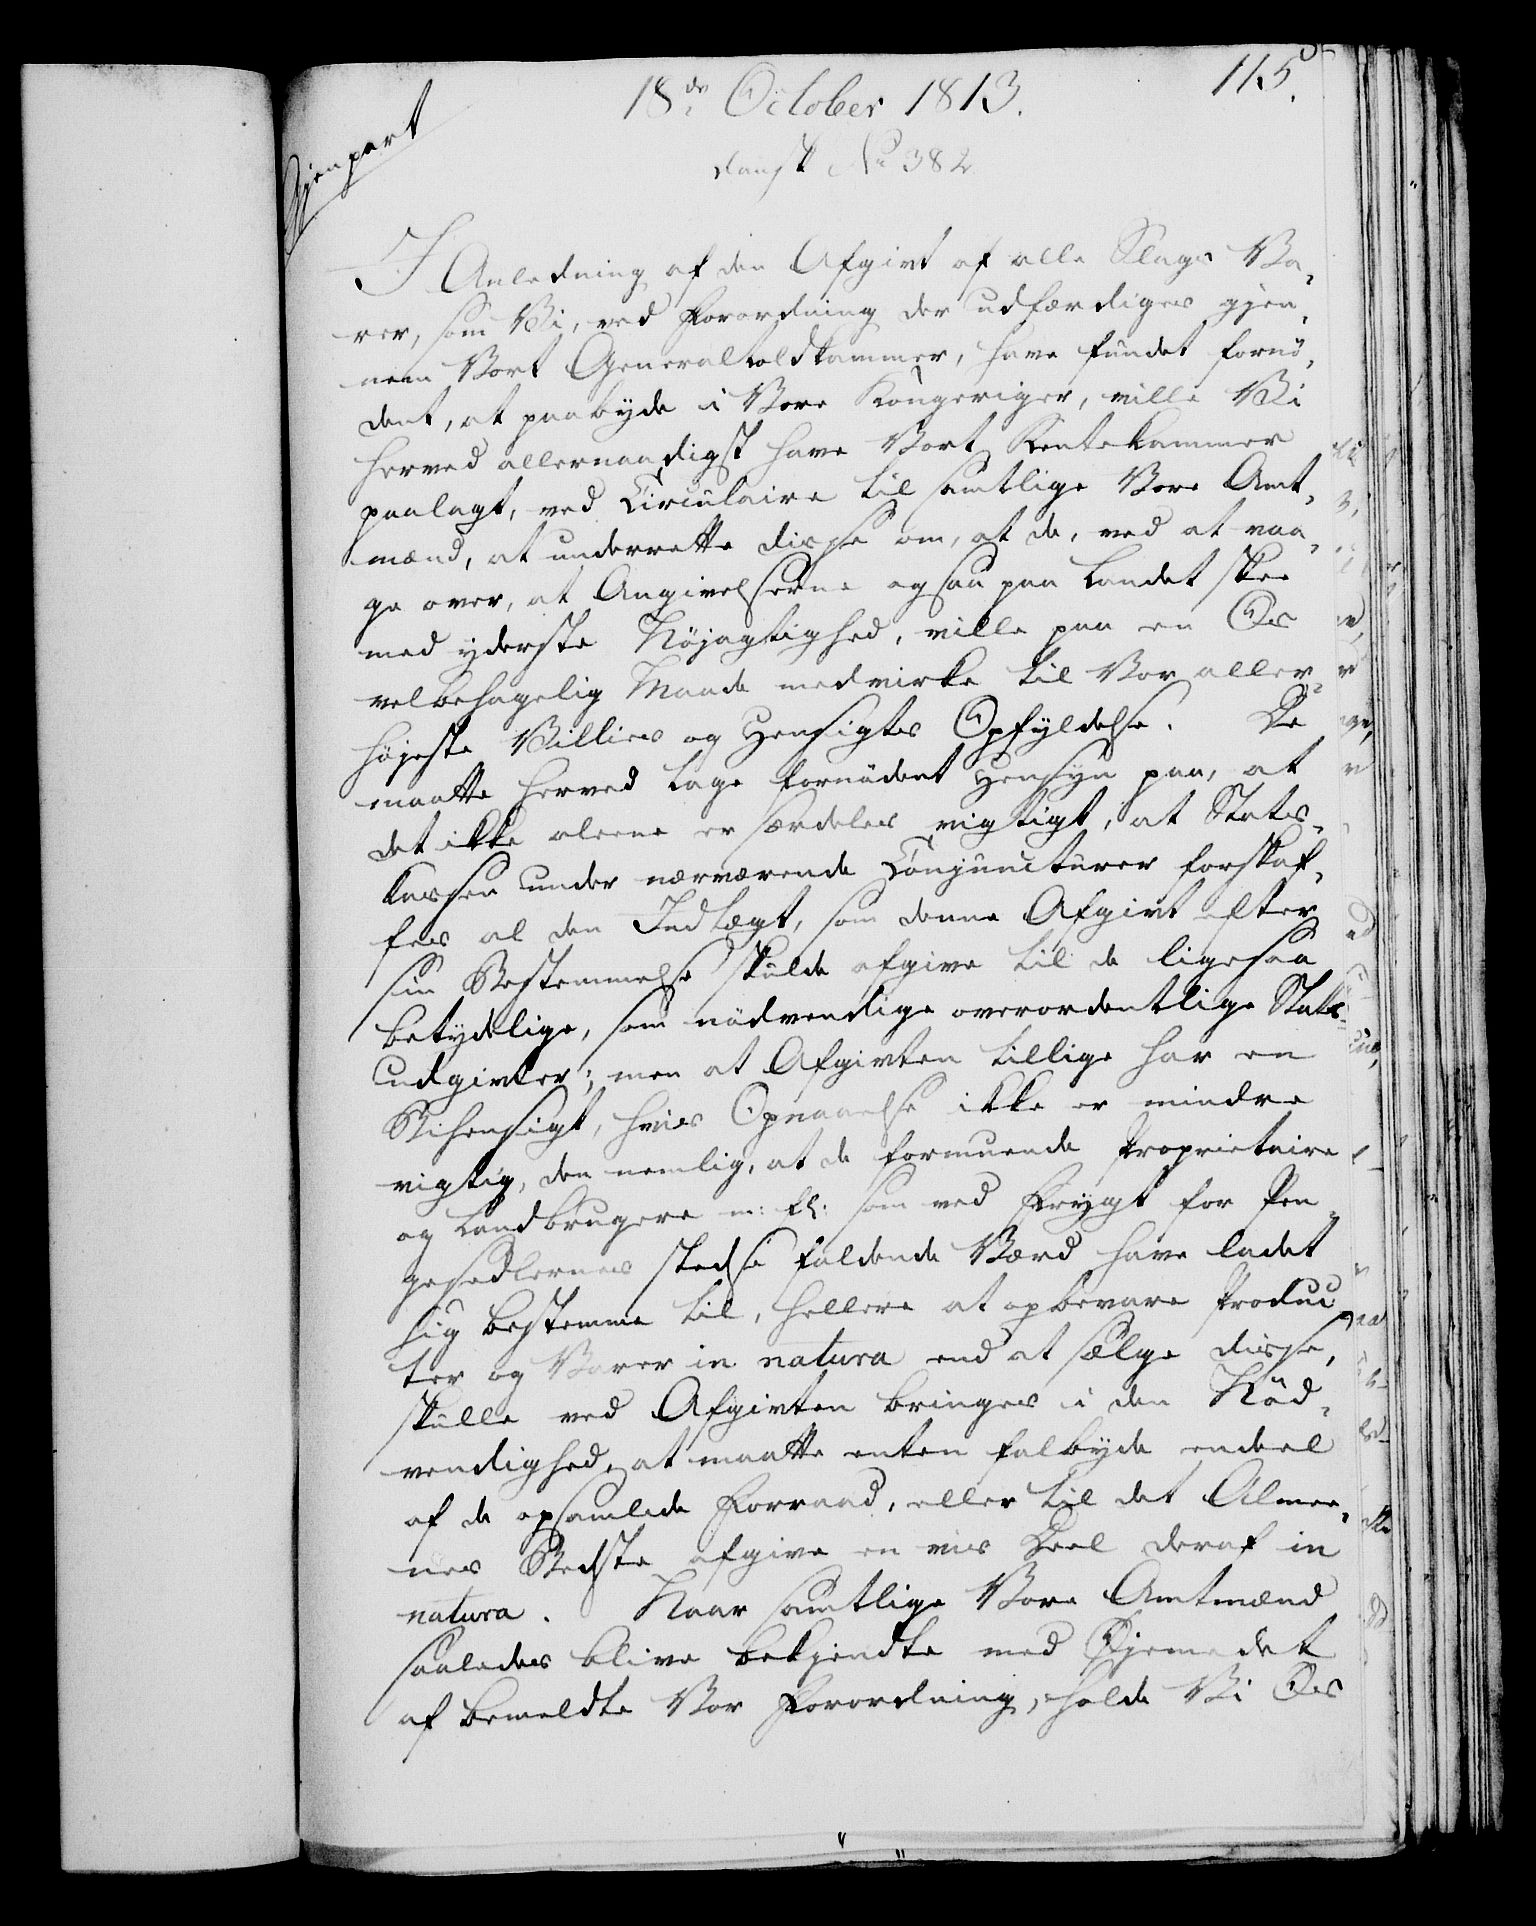 115.
18de October 1813.
Gjenpart
dansk No 382
I Anledning af den Afgivt af alle Slags Va-
rer, som Vi, ved Forordning der udfærdiges gjen-
nem Vort Generaltoldkammer, have fundet fornö-
dent, at paabyde i Vore Kongeriger, ville Vi
herved allernaadigst have Vort Rentekammer
paalagt, ved Circulaire til samtlige Vore Amt-
mænd, at underrette disse om, at de, ved at vaa-
ge over, at Angivelserne ogsaa paa Landet skee
med yderste Nöjagtighed, ville paa en Os
velbehagelig Maade medvirke til Vor aller-
höjeste Villies og Hensigts Opfyldelse. De
maatte herved tage fornödent Hensyn paa, at
det ikke alene er særdeles vigtigt, at Stats-
kassen under nærværende Conjuncturer forskaf-
fes al den Indtægt, som denne Afgivt efter
sin Bestemmelse skulde afgive til de ligesaa
betydelige, som nödvendige overordentlige Stats-
udgivter; men at Afgivten tillige har en
Bihensigt, hvis Opnaaelse ikke er mindre
vigtig, den nemlig, at de formuende Proprietaire
og Landbrugere m: fl: som ved Frygt for Pen-
gesedlernes stedse faldende Værd have ladet
sig bestemme til, hellere at opbevare Produc-
ter og Varer in natura end at sælge disse,
skulle ved Afgivten bringes i den Nöd-
vendighed, at maatte enten falbyde endeel
af de opsamlede Forraad, eller til det Almee-
nes Bedste afgive en vis Deel deraf in
natura. Naar samtlige Vore Amtmænd
saaledes blive bekjendte med Øjemedet
af bemeldte Vor Forordning, holde Vi Os